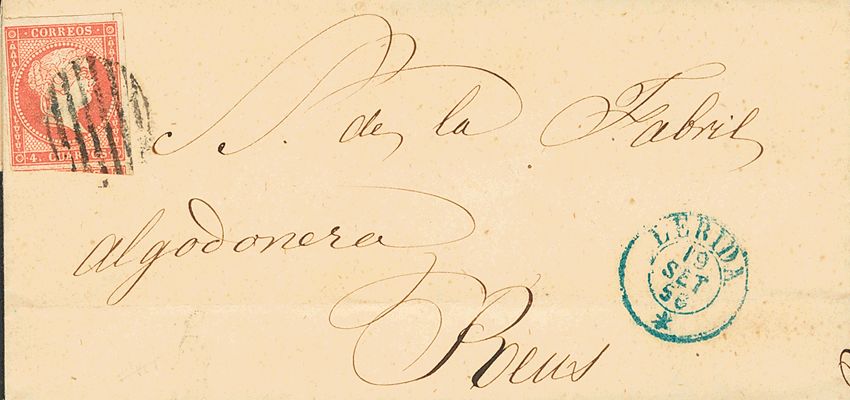 CORREOS
4. CUARTOS
S. de la Fabril
algodonera
Reus
LERIDA
19
SET
56